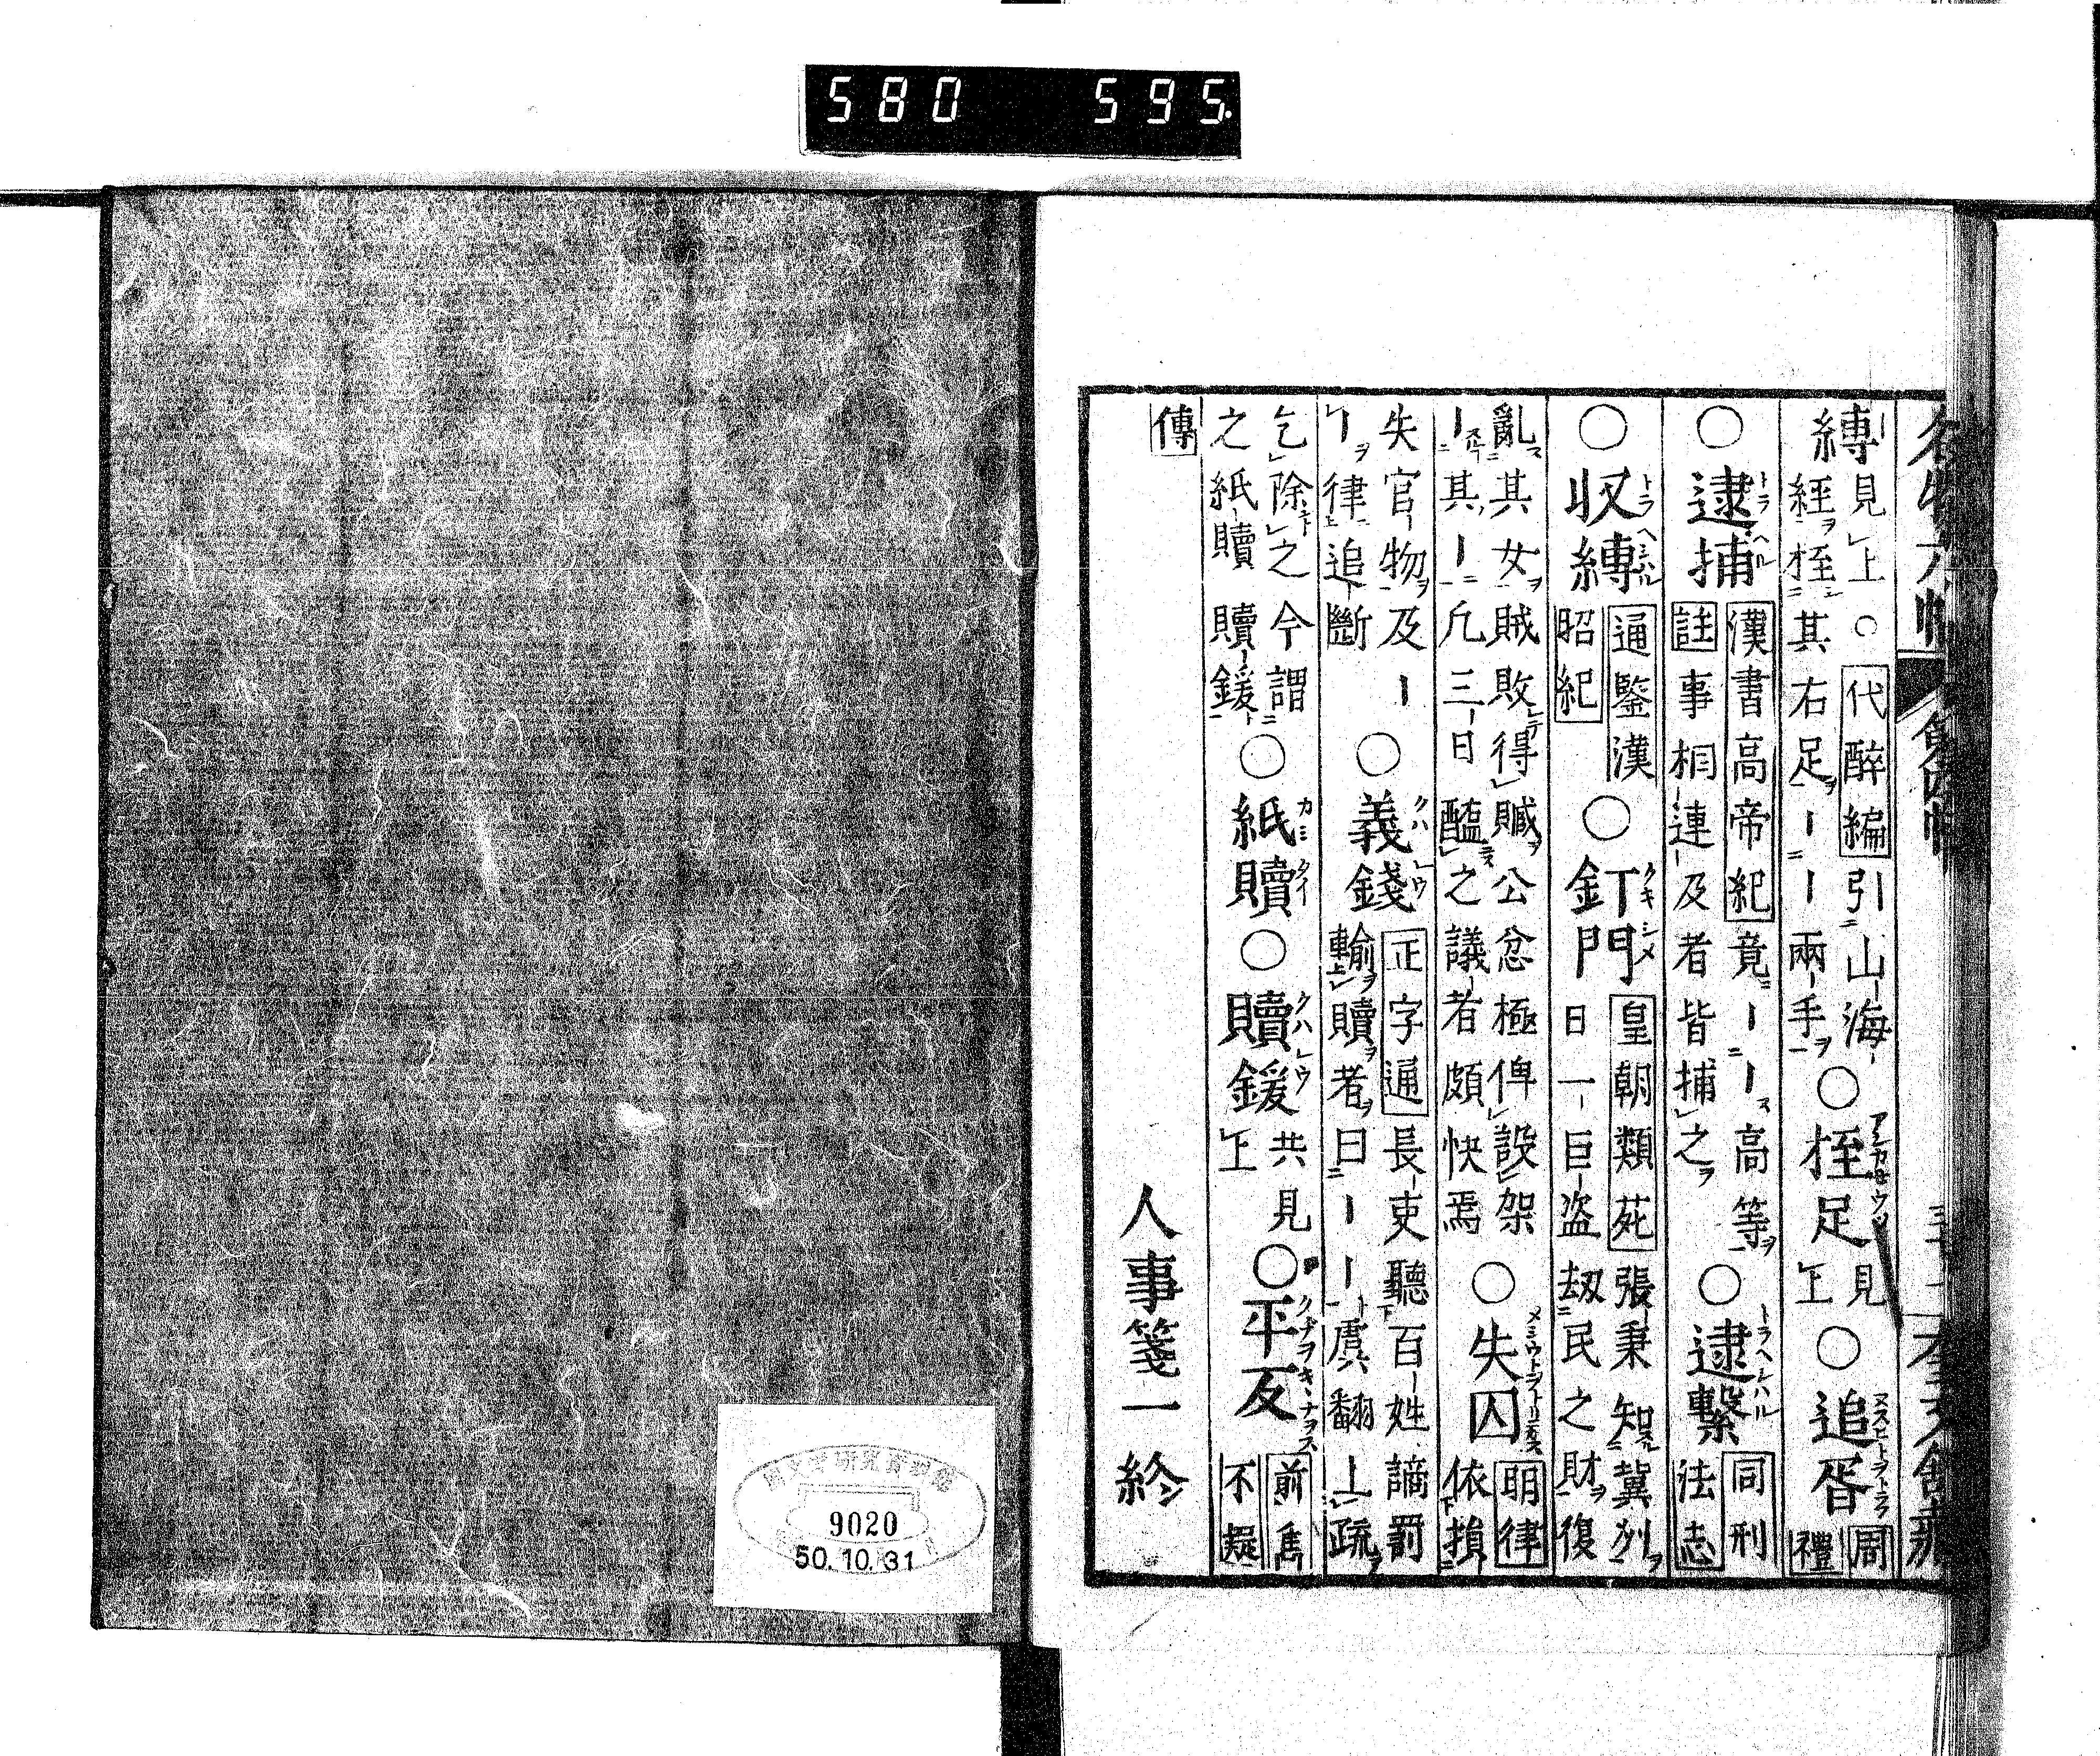 580 595
縛見上○代醉編引山海
經桎其右足ーー兩手○桎足見上○追胥周禮
○逮捕漢書高帝紀竟ーー高等
註事相連及者皆捕之○逮繫同刑法志
○収縛通鑒漢昭紀○釘門皇朝類苑張秉知冀州
日一巨盗劫民之財復
亂其女賊敗得贓公忿極俾設架
ー其ー凡三日醢之議者頗快焉○失囚明律依損
失官物及ー
ー律追斷○義錢正字通長吏聽百姓謫罰
輸贖者曰ーー虞翻上疏
乞除之今謂
之紙贖贖鍰○紙贖○贖鍰共見上○平反前雋不疑
傳
人事箋一終
9020
50.10.31